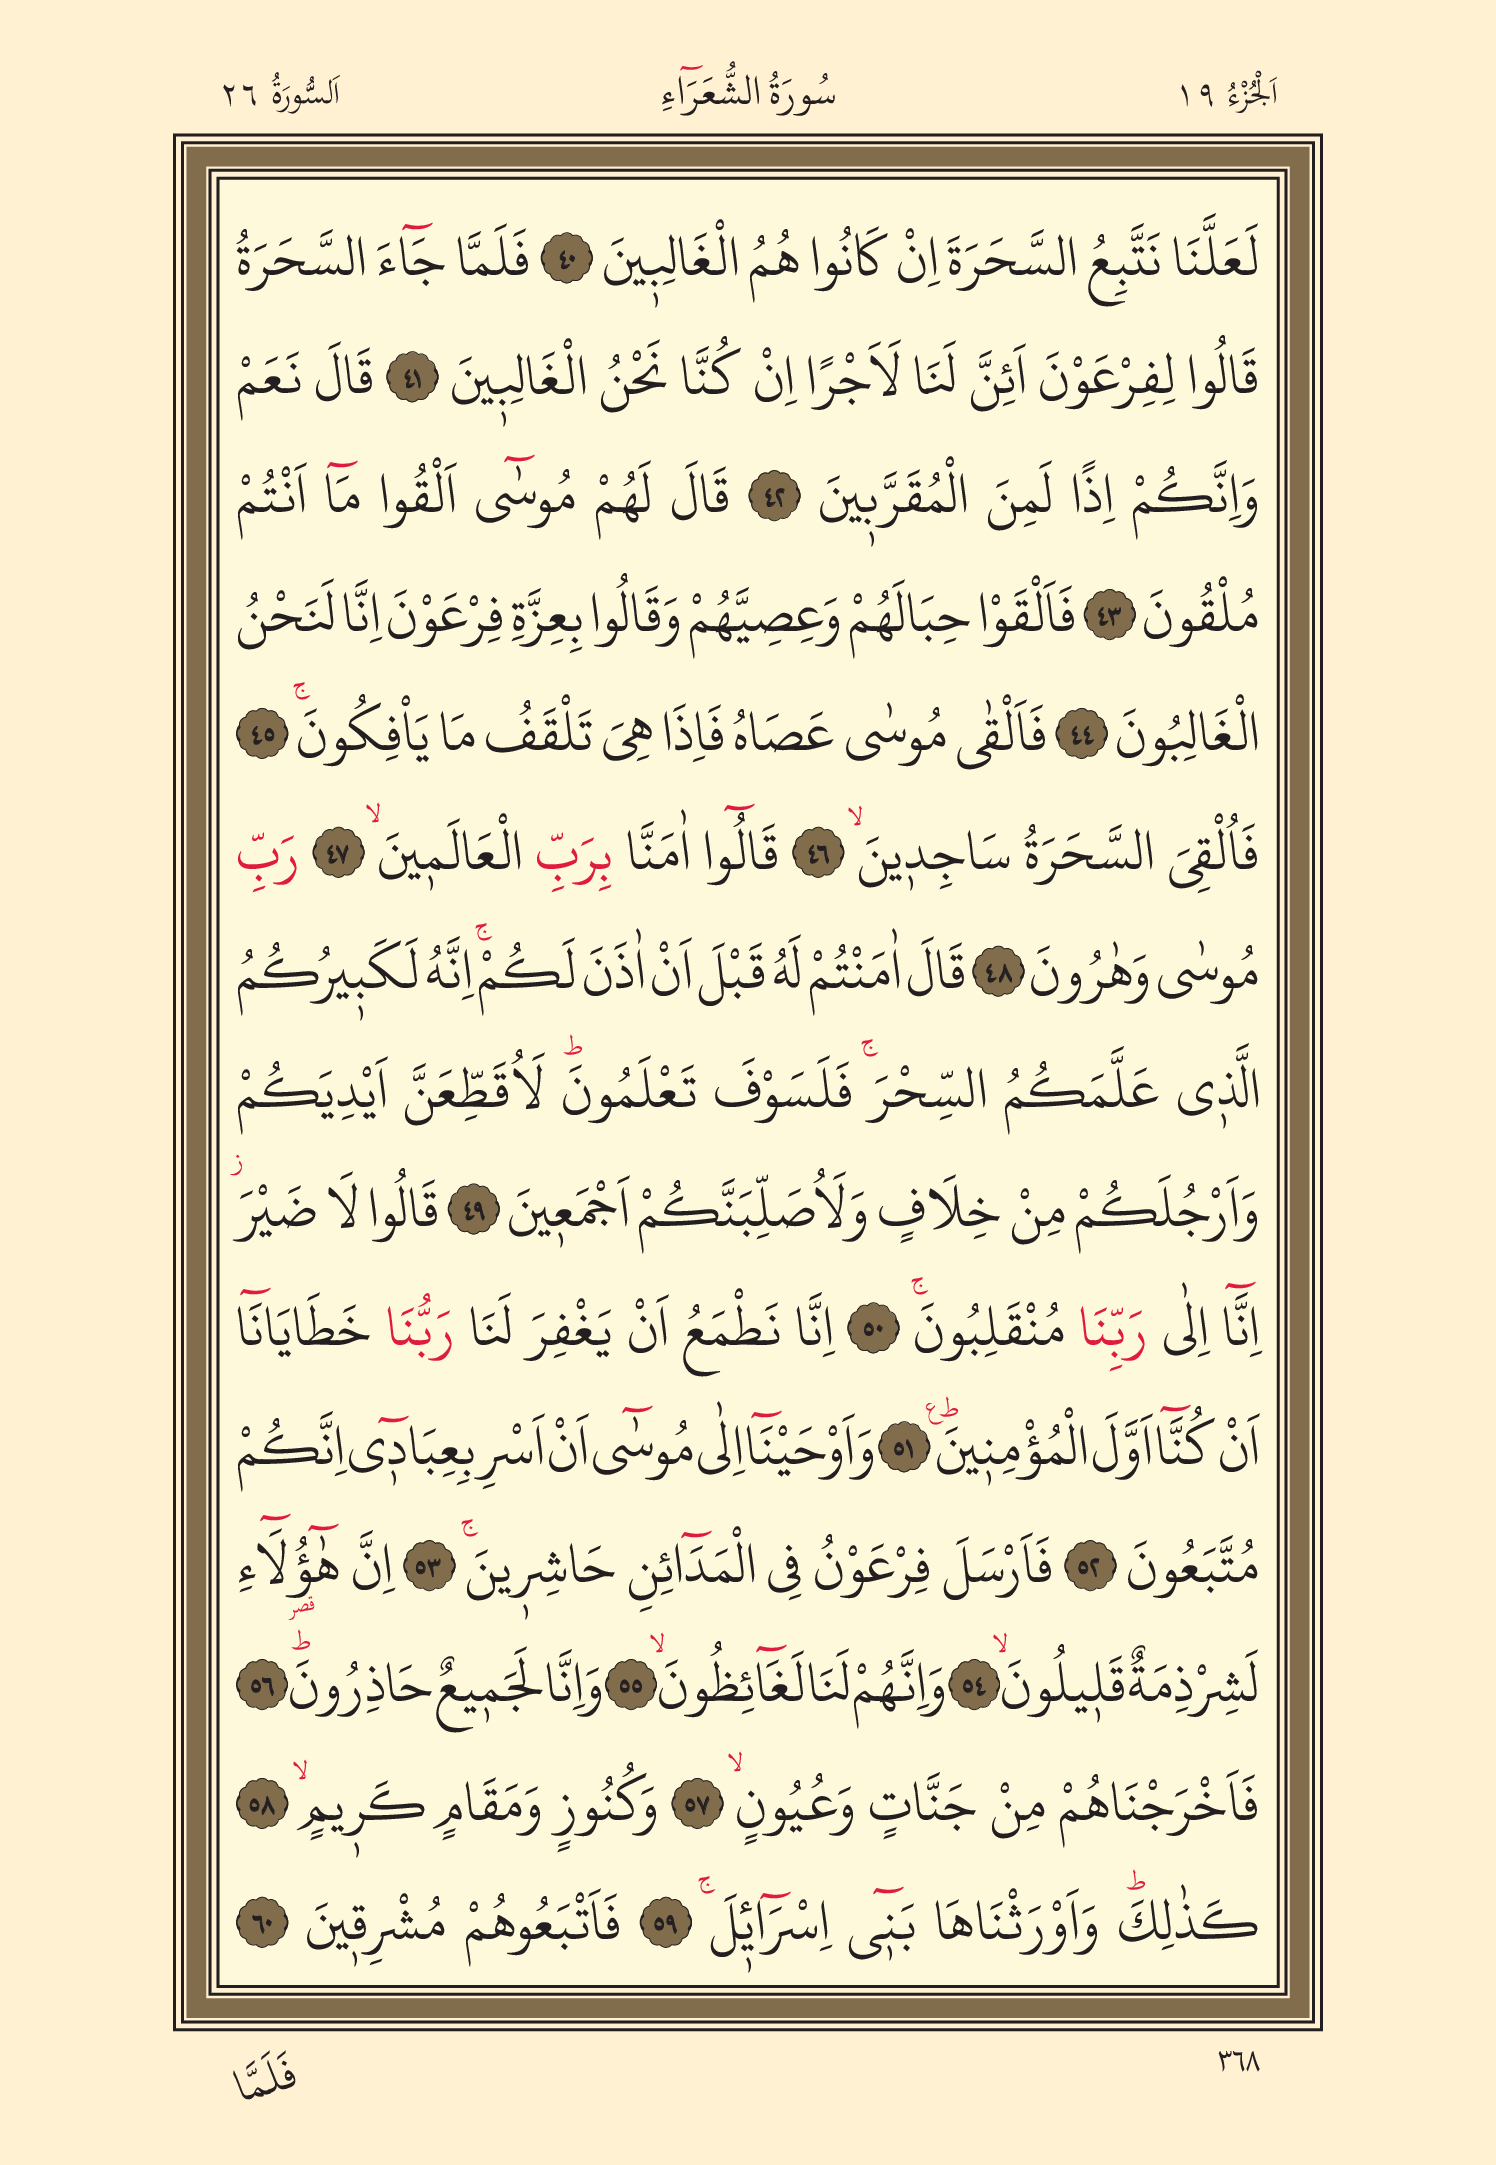 اَلْجُزْءُ ١٩ سُورَةُ الشُّعَرَٓاءِ اَلسُّورَةُ ٢٦
لَعَلَّنَا نَتَّبِعُ السَّحَرَةَ اِنْ كَانُوا هُمُ الْغَالِبٖينَ ﴿٤٠﴾ فَلَمَّا جَٓاءَ السَّحَرَةُ
قَالُوا لِفِرْعَوْنَ اَئِنَّ لَنَا لَاَجْرًا اِنْ كُنَّا نَحْنُ الْغَالِبٖينَ ﴿٤١﴾ قَالَ نَعَمْ
وَاِنَّكُمْ اِذًا لَمِنَ الْمُقَرَّبٖينَ ﴿٤٢﴾ قَالَ لَهُمْ مُوسٰٓى اَلْقُوا مَٓا اَنْتُمْ
مُلْقُونَ ﴿٤٣﴾ فَاَلْقَوْا حِبَالَهُمْ وَعِصِيَّهُمْ وَقَالُوا بِعِزَّةِ فِرْعَوْنَ اِنَّا لَنَحْنُ
الْغَالِبُونَ ﴿٤٤﴾ فَاَلْقٰى مُوسٰى عَصَاهُ فَاِذَا هِىَ تَلْقَفُ مَا يَاْفِكُونَۚ ﴿٤٥﴾
فَاُلْقِىَ السَّحَرَةُ سَاجِدٖينَۙ ﴿٤٦﴾ قَالُٓوا اٰمَنَّا بِرَبِّ الْعَالَمٖينَۙ ﴿٤٧﴾ رَبِّ
مُوسٰى وَهٰرُونَ ﴿٤٨﴾ قَالَ اٰمَنْتُمْ لَهُ قَبْلَ اَنْ اٰذَنَ لَكُمْۚ اِنَّهُ لَكَبٖيرُكُمُ
الَّذٖى عَلَّمَكُمُ السِّحْرَۚ فَلَسَوْفَ تَعْلَمُونَؕ لَاُقَطِّعَنَّ اَيْدِيَكُمْ
وَاَرْجُلَكُمْ مِنْ خِلَافٍ وَلَاُصَلِّبَنَّكُمْ اَجْمَعٖينَ ﴿٤٩﴾ قَالُوا لَا ضَيْرَؗ
اِنَّٓا اِلٰى رَبِّنَا مُنْقَلِبُونَۚ ﴿٥٠﴾ اِنَّا نَطْمَعُ اَنْ يَغْفِرَ لَنَا رَبُّنَا خَطَايَانَٓا
اَنْ كُنَّٓا اَوَّلَ الْمُؤْمِنٖينَؕ ع ﴿٥١﴾ وَاَوْحَيْنَٓا اِلٰى مُوسٰٓى اَنْ اَسْرِ بِعِبَادٖٓى اِنَّكُمْ
مُتَّبَعُونَ ﴿٥٢﴾ فَاَرْسَلَ فِرْعَوْنُ فِى الْمَدَٓائِنِ حَاشِرٖينَۚ ﴿٥٣﴾ اِنَّ هٰٓؤُلَٓاءِ
لَشِرْذِمَةٌ قَلٖيلُونَۙ ﴿٥٤﴾ وَاِنَّهُمْ لَنَا لَغَٓائِظُونَۙ ﴿٥٥﴾ وَاِنَّا لَجَمٖيعٌ حَاذِرُونَؕ قصر ﴿٥٦﴾
فَاَخْرَجْنَاهُمْ مِنْ جَنَّاتٍ وَعُيُونٍۙ ﴿٥٧﴾ وَكُنُوزٍ وَمَقَامٍ كَرٖيمٍۙ ﴿٥٨﴾
كَذٰلِكَؕ وَاَوْرَثْنَاهَا بَنٖٓى اِسْرَٓائٖلَۚ ﴿٥٩﴾ فَاَتْبَعُوهُمْ مُشْرِقٖينَ ﴿٦٠﴾
٣٦٨ فَلَمَّا